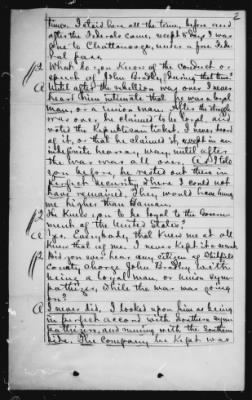 2
times. I staid here all the time, before and
after the Federals came, except 8 days I was
gone to Chattanooga, under a free Fed-
eral pass.
What do you know of the conduct or
speech of John Bradley during that time?
A Until after the rebellion was over I never
heard him intimate that he was a loyal
man or a Union man. After the struggle
was over, he claimed to be loyal and
voted the Republican ticket. I never heard
of it, or that he claimed it except in an
indefinite hearsay way, until after
the war was all over. As I told
you before, he rested out there in
perfect security where I could not
have remained. They would have hung
me higher than Haman.
He knew you to be loyal to the Govern-
ment of the United States?
A Yes. Everybody that knew me at all
knew that of me. I never kept it a secret.
Did you ever hear any citizen of Whitfield
County charge John Bradley with
being a loyal man or Union sym-
pathizer, while the war was going
on?
A I never did. I looked upon him as being
in perfect accord with Southern sym-
pathizers, and running with the Southern
side. The Company he kept was